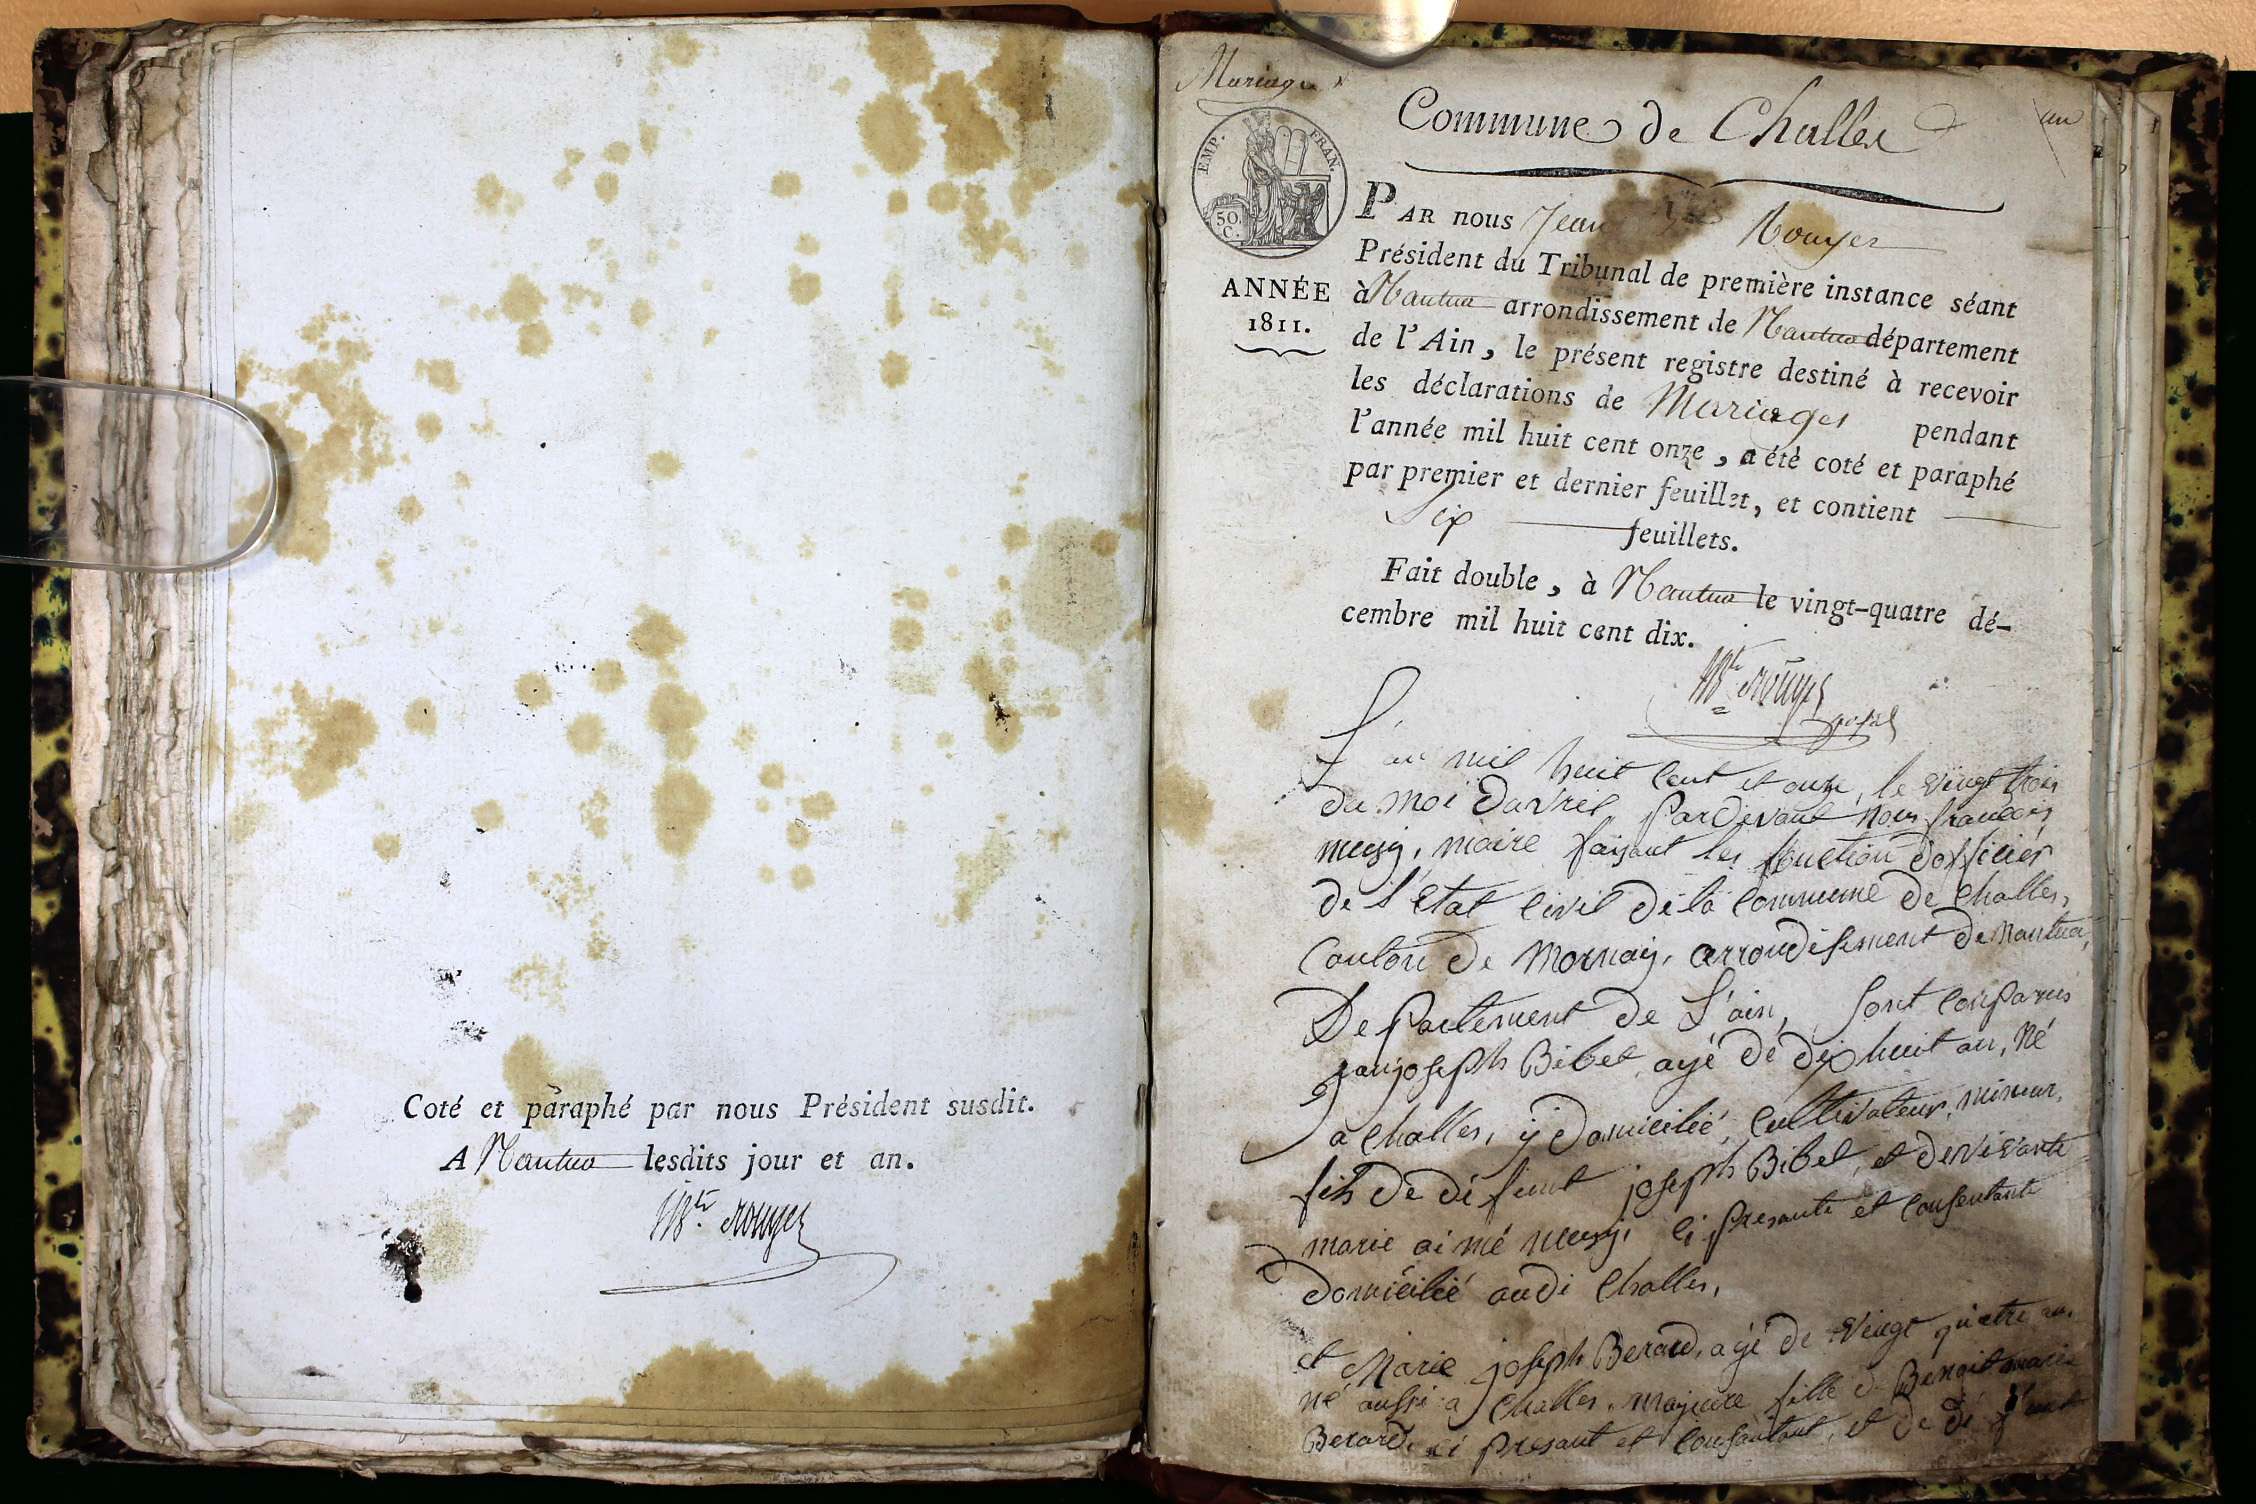 Coté et paraphé par nous Président susdit.
A Nantua lesdits jour et an.
Mariages
un
Commune de Challes
EMP. FRAN.
50. C.
ANNÉE
1811.
PAR nous Jean Rouyer
Président du Tribunal de première instance séant
à Nantua arrondissement de Nantua département
de l'Ain, le présent registre destiné à recevoir
les déclarations de Mariages pendant
l'année mil huit cent onze, a été coté et paraphé
par premier et dernier feuillet, et contient
Six feuillets.
Fait double, à Nantua le vingt-quatre dé-
cembre mil huit cent dix.
L'an mil huit cent et onze, le vingt trois
du moi davril, pardevant nous françois
musy, maire faisant les fonction dofficier
de l'etat civil de la commune de Challes,
Canton de Mornay, arrondisement de Nantua,
Departement de L'ain, sont comparus
janjoseph Bibet, agé de dix huit an, né
a Challes, y domicilié, cultivateur, mineur,
fils de défunt joseph Bibet, et de vivante
marie aimé musy, ci presante et consentante
domicilié audi Challes,
et Marie joseph Berard, agé de vingt quatre an,
né aussi a Challes, majeure fille d Benoit marie
Berard, ci presant et consantant, et de défunt